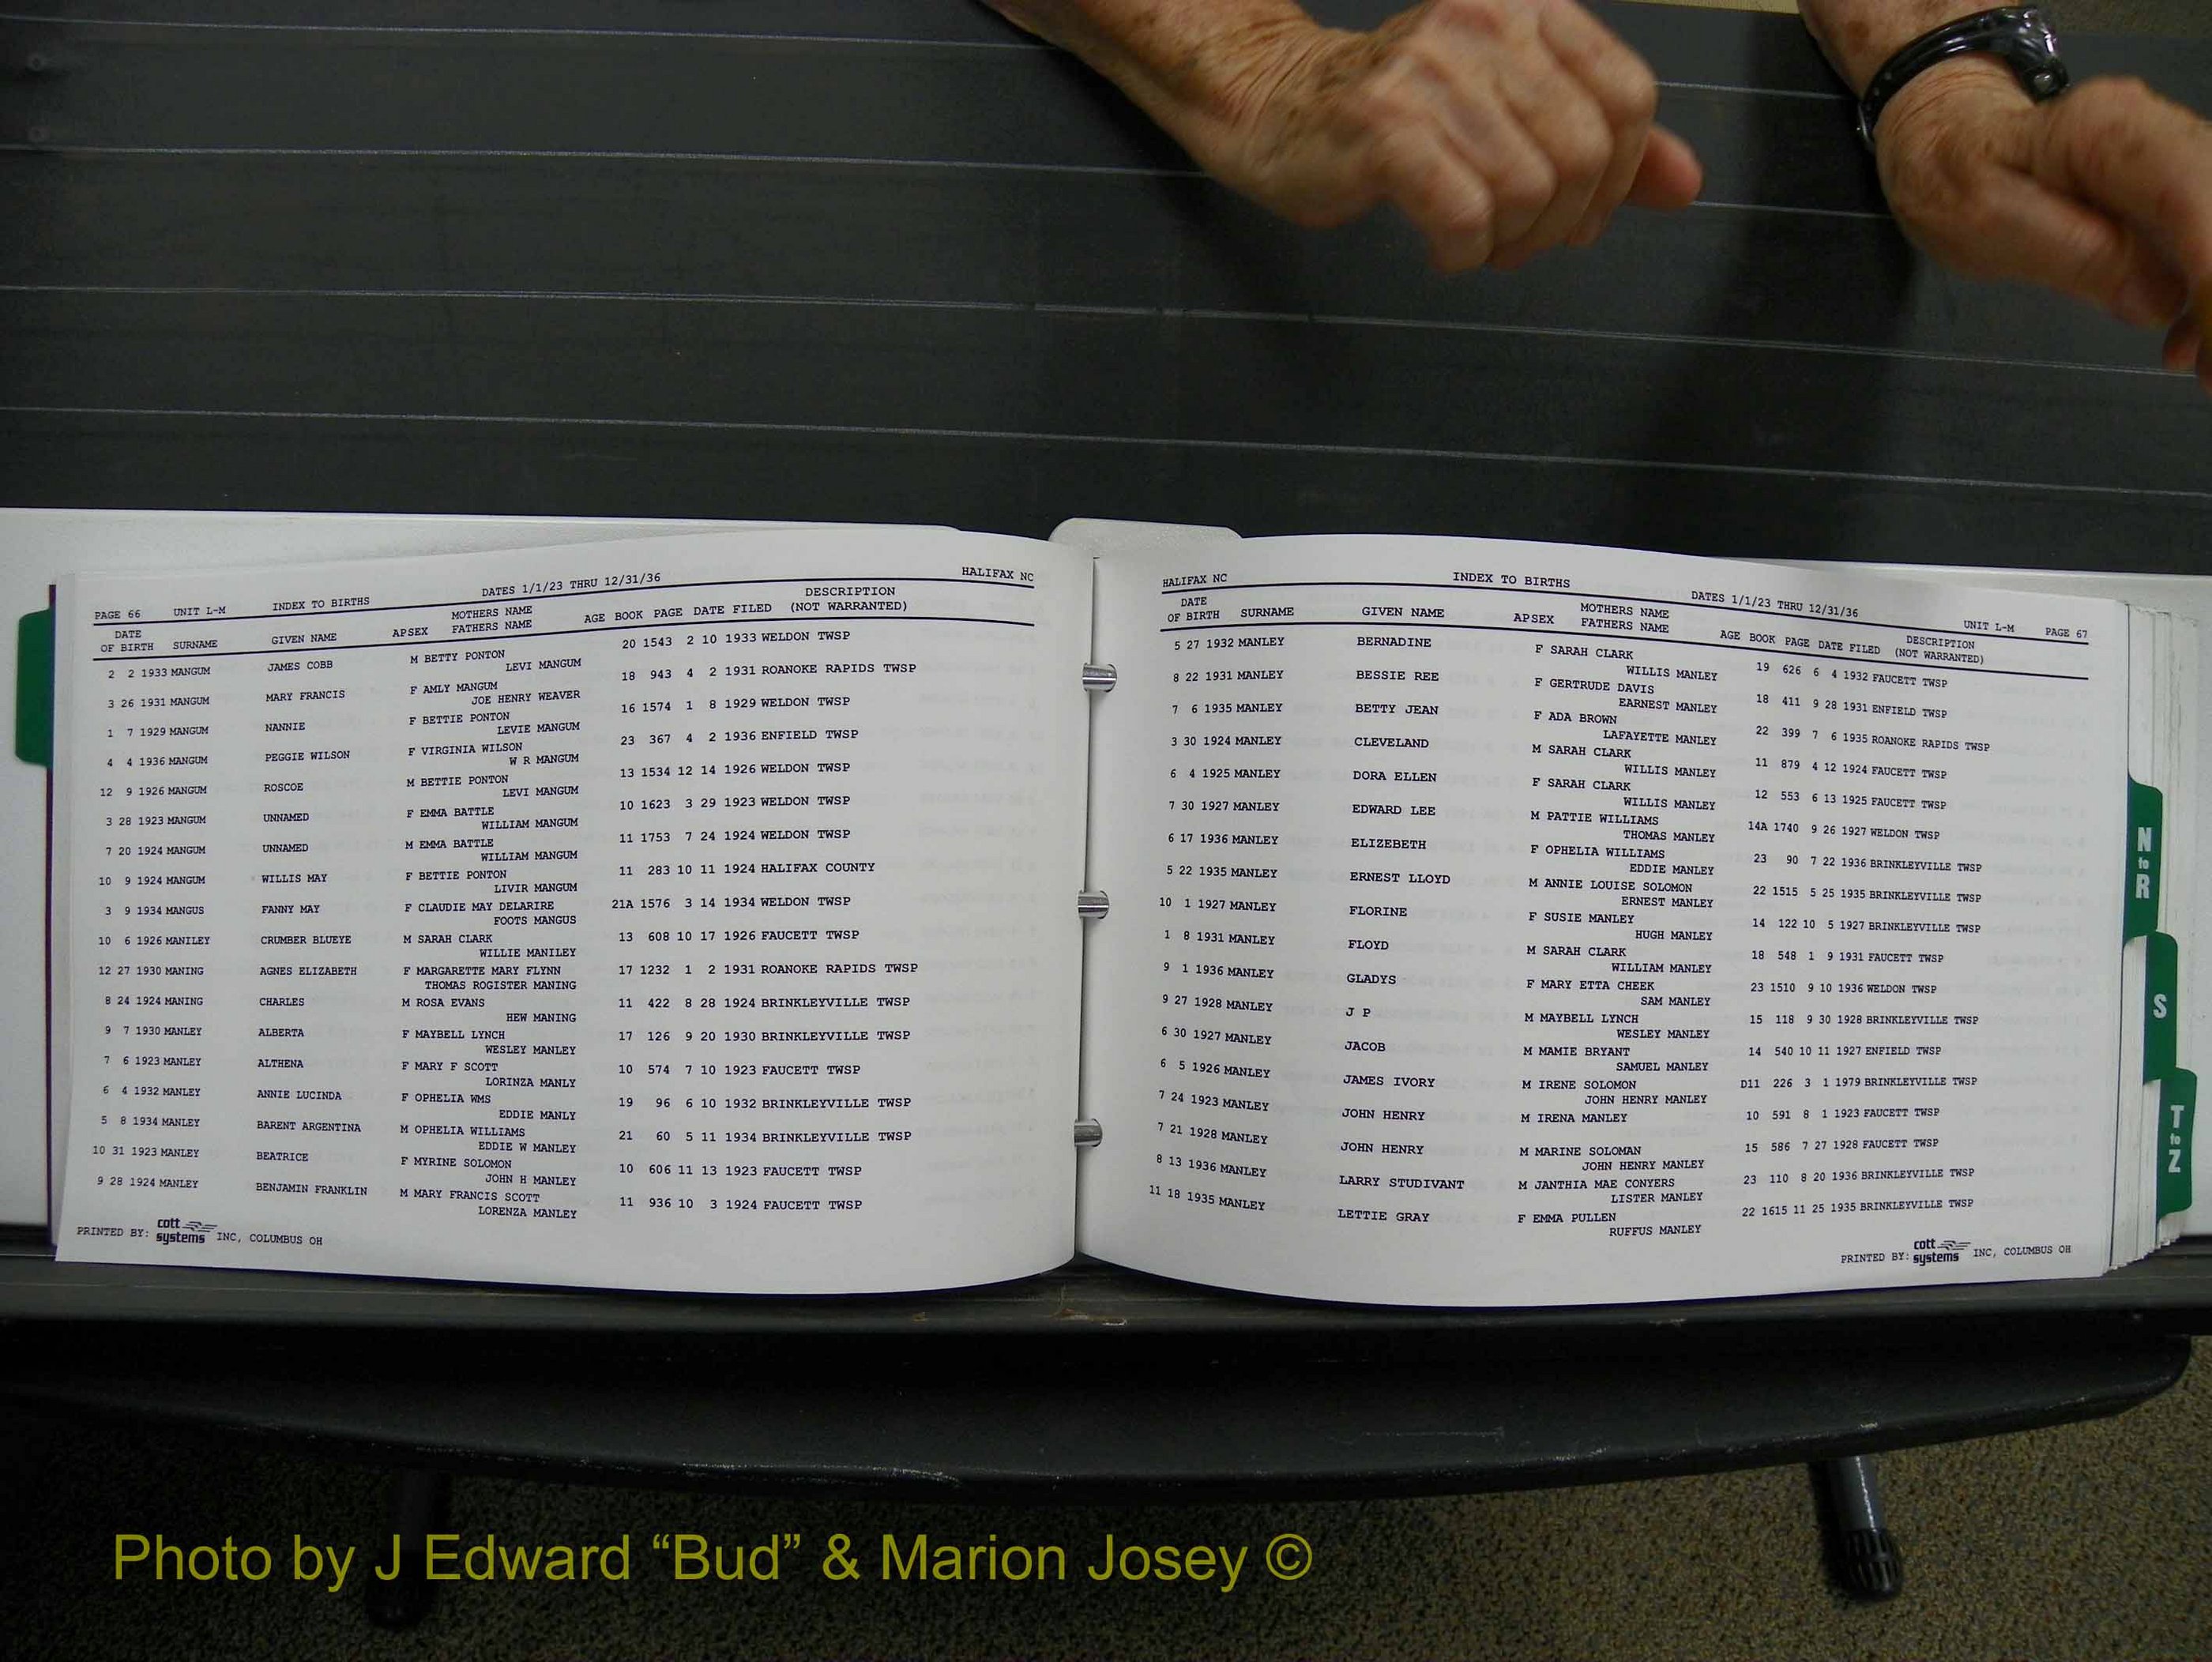 PAGE 66 UNIT L-M INDEX TO BIRTHS DATES 1/1/23 THRU 12/31/36 HALIFAX NC
DATE OF BIRTH SURNAME GIVEN NAME APSEX MOTHERS NAME FATHERS NAME AGE BOOK PAGE DATE FILED DESCRIPTION (NOT WARRANTED)
2 2 1933 MANGUM JAMES COBB M BETTY PONTON 20 1543 2 10 1933 WELDON TWSP
LEVI MANGUM
3 26 1931 MANGUM MARY FRANCIS F AMLY MANGUM 18 943 4 2 1931 ROANOKE RAPIDS TWSP
JOE HENRY WEAVER
1 7 1929 MANGUM NANNIE F BETTIE PONTON 16 1574 1 8 1929 WELDON TWSP
LEVIE MANGUM
4 4 1936 MANGUM PEGGIE WILSON F VIRGINIA WILSON 23 367 4 2 1936 ENFIELD TWSP
W R MANGUM
12 9 1926 MANGUM ROSCOE M BETTIE PONTON 13 1534 12 14 1926 WELDON TWSP
LEVI MANGUM
3 28 1923 MANGUM UNNAMED F EMMA BATTLE 10 1623 3 29 1923 WELDON TWSP
WILLIAM MANGUM
7 20 1924 MANGUM UNNAMED M EMMA BATTLE 11 1753 7 24 1924 WELDON TWSP
WILLIAM MANGUM
10 9 1924 MANGUM WILLIS MAY F BETTIE PONTON 11 283 10 11 1924 HALIFAX COUNTY
LIVIR MANGUM
3 9 1934 MANGUS FANNY MAY F CLAUDIE MAY DELARIRE 21A 1576 3 14 1934 WELDON TWSP
FOOTS MANGUS
10 6 1926 MANILEY CRUMBER BLUEYE M SARAH CLARK 13 608 10 17 1926 FAUCETT TWSP
WILLIE MANILEY
12 27 1930 MANING AGNES ELIZABETH F MARGARETTE MARY FLYNN 17 1232 1 2 1931 ROANOKE RAPIDS TWSP
THOMAS ROGISTER MANING
8 24 1924 MANING CHARLES M ROSA EVANS 11 422 8 28 1924 BRINKLEYVILLE TWSP
HEW MANING
9 7 1930 MANLEY ALBERTA F MAYBELL LYNCH 17 126 9 20 1930 BRINKLEYVILLE TWSP
WESLEY MANLEY
7 6 1923 MANLEY ALTHENA F MARY F SCOTT 10 574 7 10 1923 FAUCETT TWSP
LORINZA MANLY
6 4 1932 MANLEY ANNIE LUCINDA F OPHELIA WMS 19 96 6 10 1932 BRINKLEYVILLE TWSP
EDDIE MANLY
5 8 1934 MANLEY BARENT ARGENTINA M OPHELIA WILLIAMS 21 60 5 11 1934 BRINKLEYVILLE TWSP
EDDIE W MANLEY
10 31 1923 MANLEY BEATRICE F MYRINE SOLOMON 10 606 11 13 1923 FAUCETT TWSP
JOHN H MANLEY
9 28 1924 MANLEY BENJAMIN FRANKLIN M MARY FRANCIS SCOTT 11 936 10 3 1924 FAUCETT TWSP
LORENZA MANLEY
PRINTED BY: cott systems INC, COLUMBUS OH
HALIFAX NC INDEX TO BIRTHS DATES 1/1/23 THRU 12/31/36 UNIT L-M PAGE 67
DATE OF BIRTH SURNAME GIVEN NAME APSEX MOTHERS NAME FATHERS NAME AGE BOOK PAGE DATE FILED DESCRIPTION (NOT WARRANTED)
5 27 1932 MANLEY BERNADINE F SARAH CLARK 19 626 6 4 1932 FAUCETT TWSP
WILLIS MANLEY
8 22 1931 MANLEY BESSIE REE F GERTRUDE DAVIS 18 411 9 28 1931 ENFIELD TWSP
EARNEST MANLEY
7 6 1935 MANLEY BETTY JEAN F ADA BROWN 22 399 7 6 1935 ROANOKE RAPIDS TWSP
LAFAYETTE MANLEY
3 30 1924 MANLEY CLEVELAND M SARAH CLARK 11 879 4 12 1924 FAUCETT TWSP
WILLIS MANLEY
6 4 1925 MANLEY DORA ELLEN F SARAH CLARK 12 553 6 13 1925 FAUCETT TWSP
WILLIS MANLEY
7 30 1927 MANLEY EDWARD LEE M PATTIE WILLIAMS 14A 1740 9 26 1927 WELDON TWSP
THOMAS MANLEY
6 17 1936 MANLEY ELIZEBETH F OPHELIA WILLIAMS 23 90 7 22 1936 BRINKLEYVILLE TWSP
EDDIE MANLEY
5 22 1935 MANLEY ERNEST LLOYD M ANNIE LOUISE SOLOMON 22 1515 5 25 1935 BRINKLEYVILLE TWSP
ERNEST MANLEY
10 1 1927 MANLEY FLORINE F SUSIE MANLEY 14 122 10 5 1927 BRINKLEYVILLE TWSP
HUGH MANLEY
1 8 1931 MANLEY FLOYD M SARAH CLARK 18 548 1 9 1931 FAUCETT TWSP
WILLIAM MANLEY
9 1 1936 MANLEY GLADYS F MARY ETTA CHEEK 23 1510 9 10 1936 WELDON TWSP
SAM MANLEY
9 27 1928 MANLEY J P M MAYBELL LYNCH 15 118 9 30 1928 BRINKLEYVILLE TWSP
WESLEY MANLEY
6 30 1927 MANLEY JACOB M MAMIE BRYANT 14 540 10 11 1927 ENFIELD TWSP
SAMUEL MANLEY
6 5 1926 MANLEY JAMES IVORY M IRENE SOLOMON D11 226 3 1 1979 BRINKLEYVILLE TWSP
JOHN HENRY MANLEY
7 24 1923 MANLEY JOHN HENRY M IRENA MANLEY 10 591 8 1 1923 FAUCETT TWSP
7 21 1928 MANLEY JOHN HENRY M MARINE SOLOMAN 15 586 7 27 1928 FAUCETT TWSP
JOHN HENRY MANLEY
8 13 1936 MANLEY LARRY STUDIVANT M JANTHIA MAE CONYERS 23 110 8 20 1936 BRINKLEYVILLE TWSP
LISTER MANLEY
11 18 1935 MANLEY LETTIE GRAY F EMMA PULLEN 22 1615 11 25 1935 BRINKLEYVILLE TWSP
RUFFUS MANLEY
PRINTED BY: cott systems INC, COLUMBUS OH
N to R
S
T to Z
Photo by J Edward “Bud” & Marion Josey ©